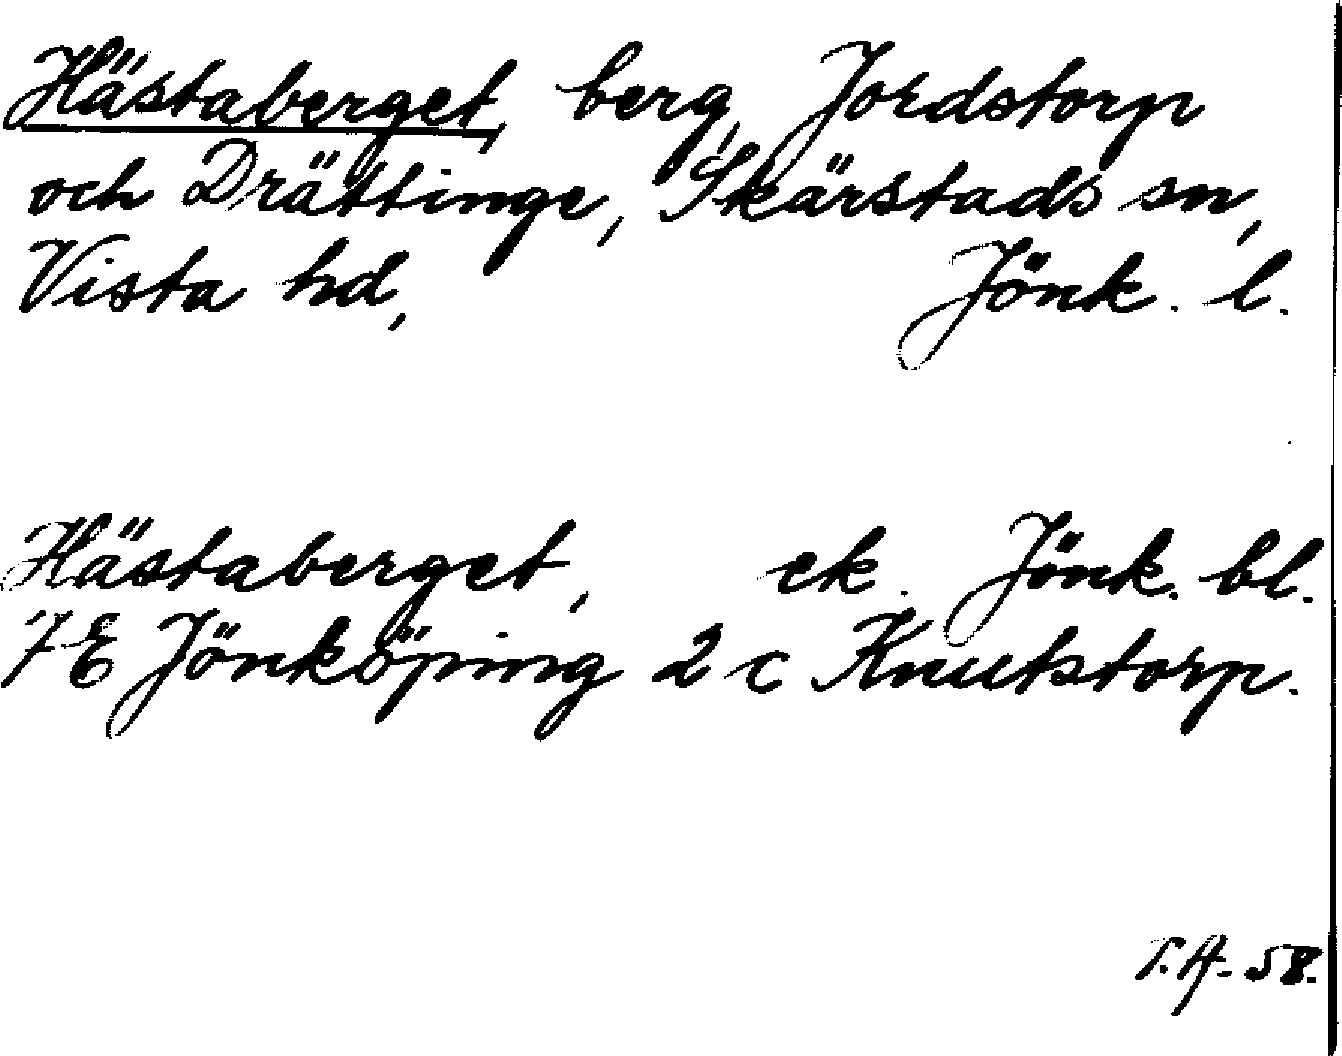 Hästaberget, berg, Jordstorp
och Drättinge, Skärstads sn,
Vista hd, Jönk. l.
Hästaberget, ek. Jönk. bl.
7E Jönköping 2 c Knutstorp.
T.A-58.